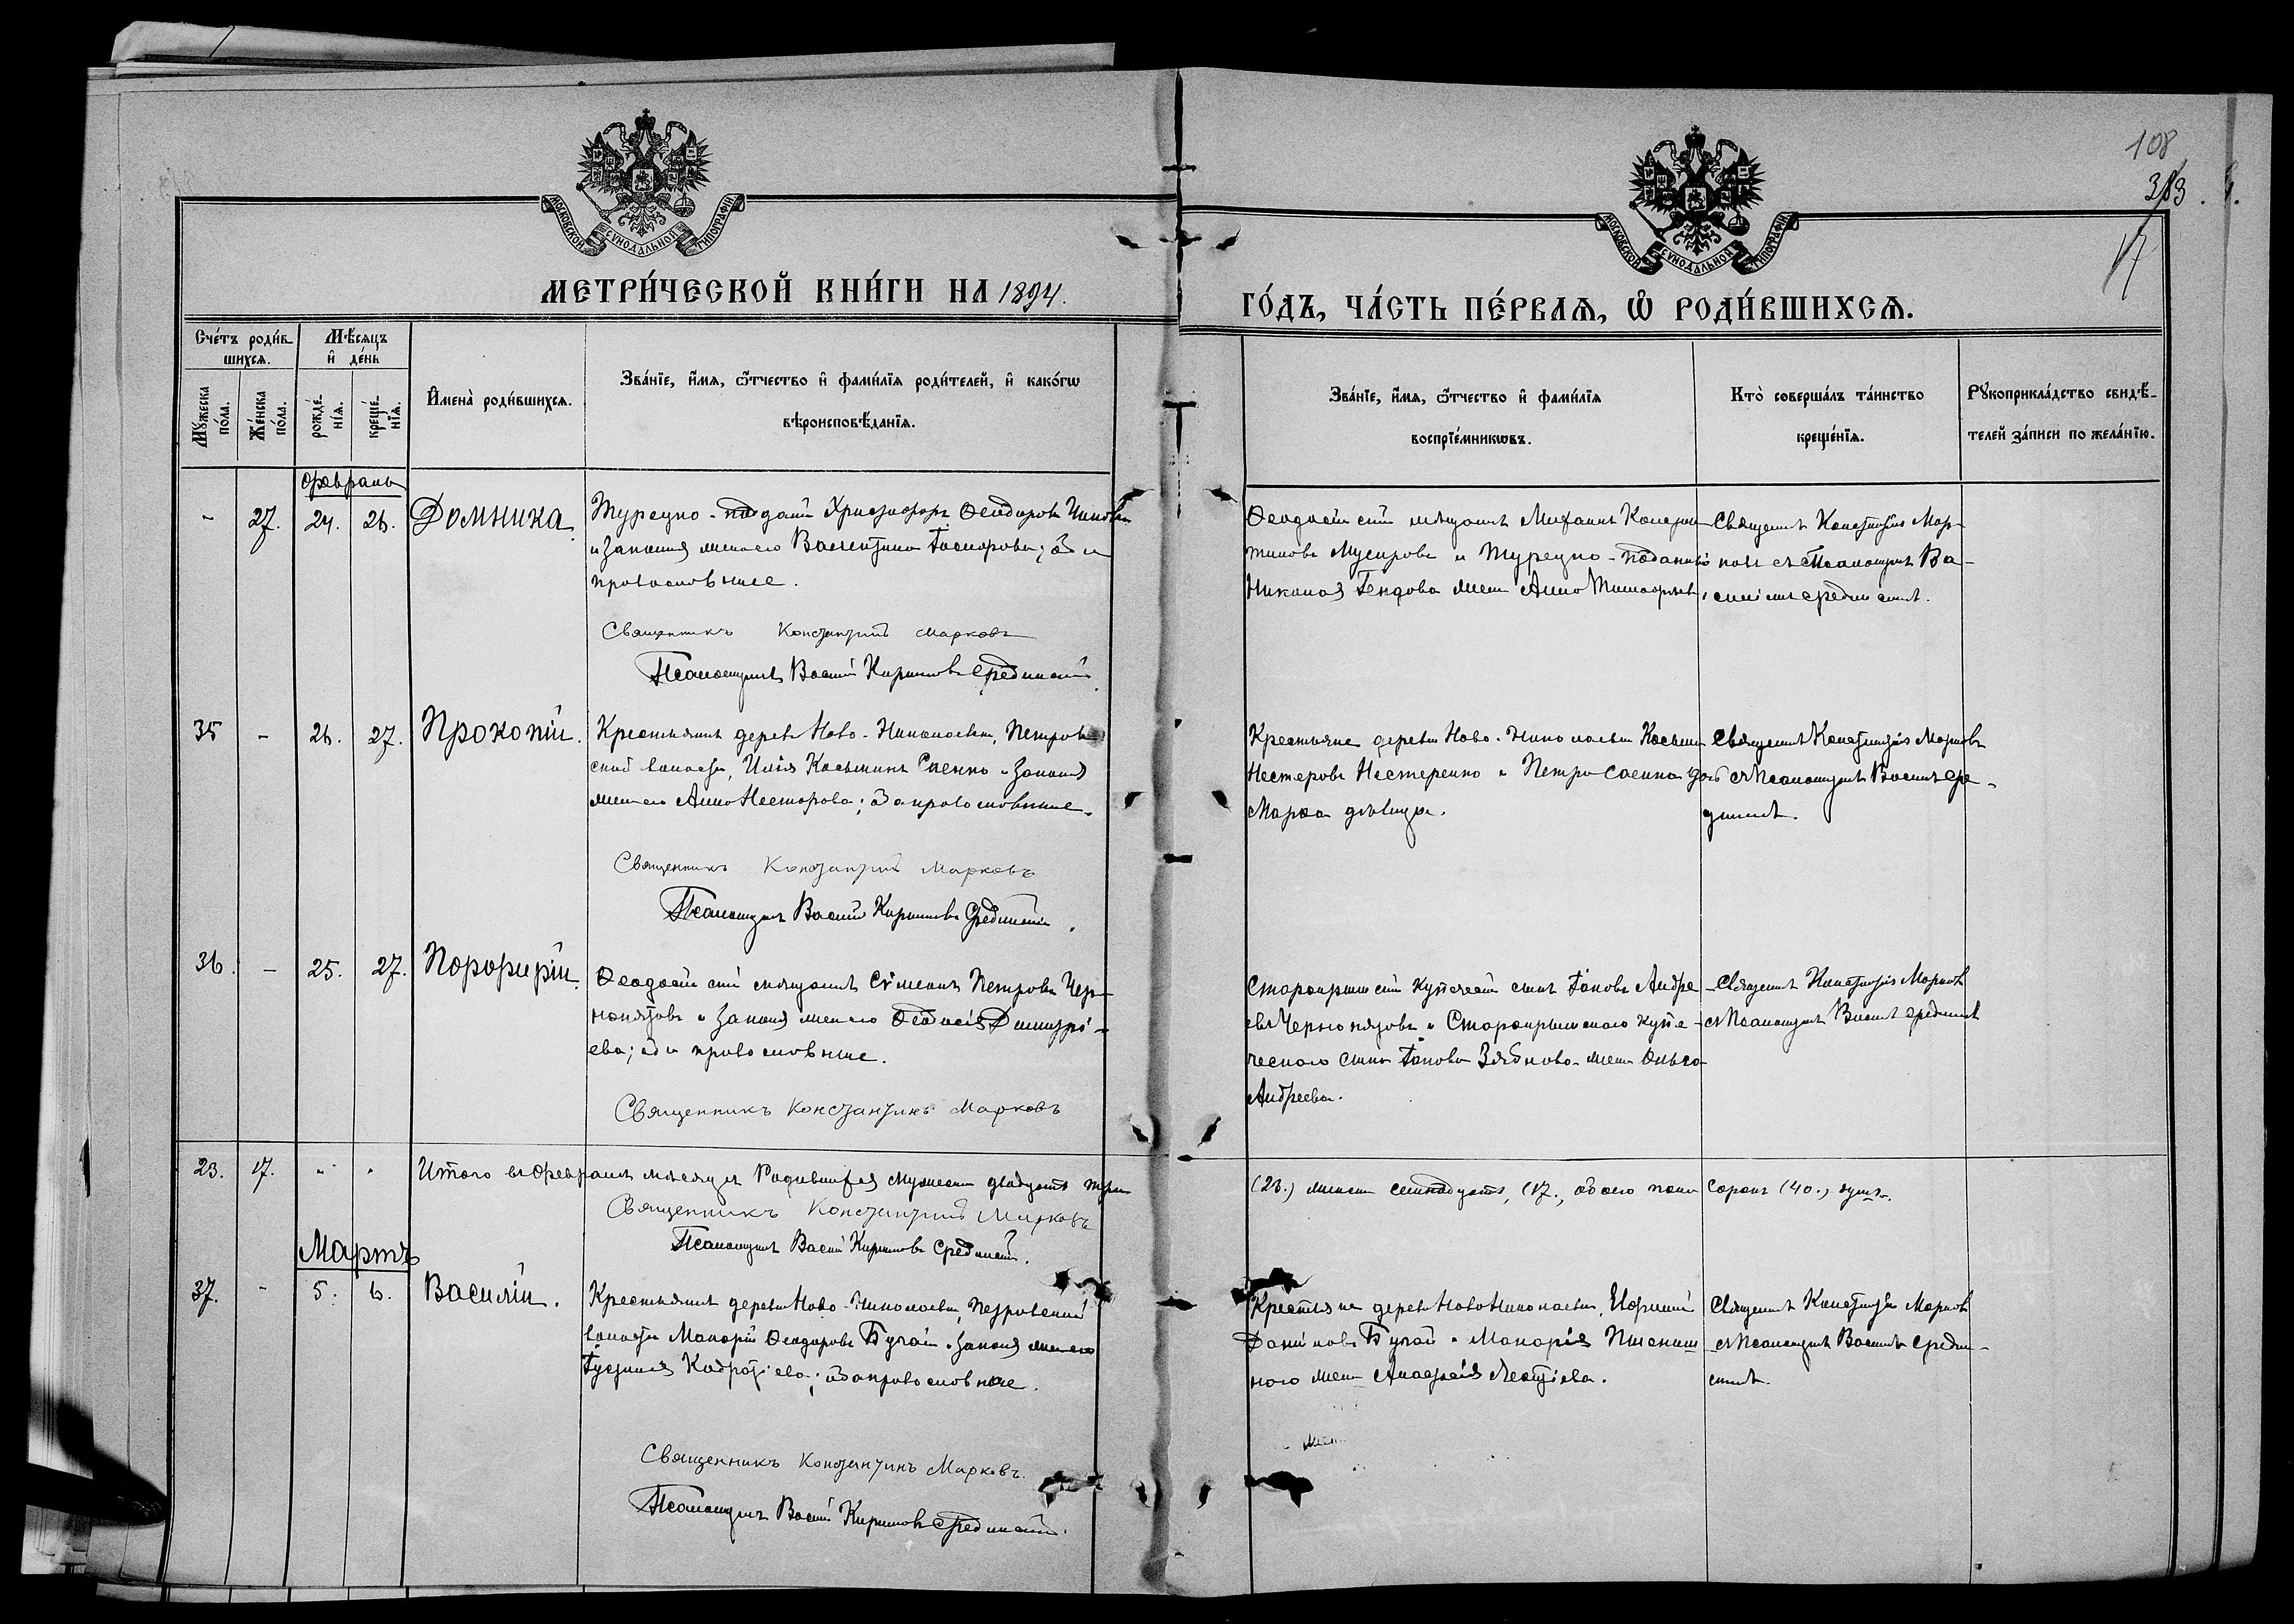 108
313.
17
МОСКОВСКОЙ СѴНОДАЛЬНОЙ ТИПОГРАФІИ
МОСКОВСКОЙ СѴНОДАЛЬНОЙ ТИПОГРАФІИ
МЕТРИ́ЧЕСКОЙ КНИ́ГИ НА 1894.
ГО́ДЪ, ЧА́СТЬ ПЕ́РВАѦ, Ѽ РОДИ́ВШИХСѦ.
Сче́тъ роди́в
шихсѧ.
Мѣ́сѧцъ
и҆ де́нь
Мꙋ́жеска
по́ла.
Же́нска
по́ла.
рожде́-
нїѧ.
креще́-
нїѧ.
И҆мена̀ роди́вшихсѧ.
Зва́нїе, и҆́мѧ, ѻ҆́тчество и҆ фами́лїѧ роди́телей, и҆ како́гѡ
вѣроисповѣ́данїѧ.
Зва́нїе, и҆́мѧ, ѻ҆́тчество и҆ фами́лїѧ
воспрїе́мникѡвъ.
Кто̀ соверша́лъ та́инство
креще́нїѧ.
Рꙋкоприкла́дство свидѣ́-
телей за́писи по жела́нїю.
Февраль
- 27. 24. 26. Домника.
Турецко-поддан Христофоръ Ѳеодоровъ
и законная жена его Валентина; оба
православные.
Священникъ Константинъ Марковъ
Псаломщикъ Василій Кириловъ Срединскій
Ѳеодосійскій мѣщанинъ Михаилъ
и Турецко-подданнаго
Николая жена Анна
Священникъ Константинъ Мар-
ковъ съ Псаломщикомъ Ва-
силіемъ Срединскимъ.
35 - 26. 27. Прокопій.
Крестьянинъ дерев. Ново-Николаевки, Петров-
ской волости, Илія Косьминъ Саенко и законная
жена его Анна Несторова; оба православные.
Священникъ Константинъ Марковъ
Псаломщикъ Василій Кириловъ Срединскій.
Крестьяне деревни Ново-Николаевки Косьма
Нестеровъ Нестеренко и Петра Саенка дочь
Марѳа дѣвица.
Священникъ Константинъ Марковъ
съ Псаломщикомъ Василіемъ Сре-
динскимъ.
36. - 25. 27. Порфирій.
Ѳеодосійскій мѣщанинъ Сѵмеонъ Петровъ Чер-
нопятовъ и законная жена его Ѳеодосія Димитрі-
ева; оба православные.
Священникъ Константинъ Марковъ
Старокрымскій купеческій сынъ Іаковъ Андре
евъ Чернопятовъ и Старокрымскаго купе-
ческаго сына Іакова Зябнова жена Ольга
Андреева.
Священникъ Константинъ Марковъ
съ Псаломщикомъ Василіемъ Срединскимъ
23. 17. " " Итого въ Февралѣ мѣсяцѣ Родившихся мужеска двадцать три
(23.) женска семнадцать, (17., обоего пола Сорокъ (40.) душъ.
Священникъ Константинъ Марковъ
Псаломщикъ Василій Кириловъ Срединскій.
Мартъ
37. - 5. 6. Василій.
Крестьянинъ деревни Ново-Николаевки, Петровской
волости Макарій Ѳеодоровъ Бугай и законная жена его
Іустинія Кодратіева; оба православные.
Священникъ Константинъ Марковъ.
Псаломщикъ Василій Кириловъ Срединскій.
Крестьяне деревни Ново Николаевки, Ефимій
Даниловъ Бугай и Макарія Пшенич
наго жена Анастасія Леонтіева.
Священникъ Константинъ Марковъ
съ Псаломщикомъ Василіемъ Средин-
скимъ.